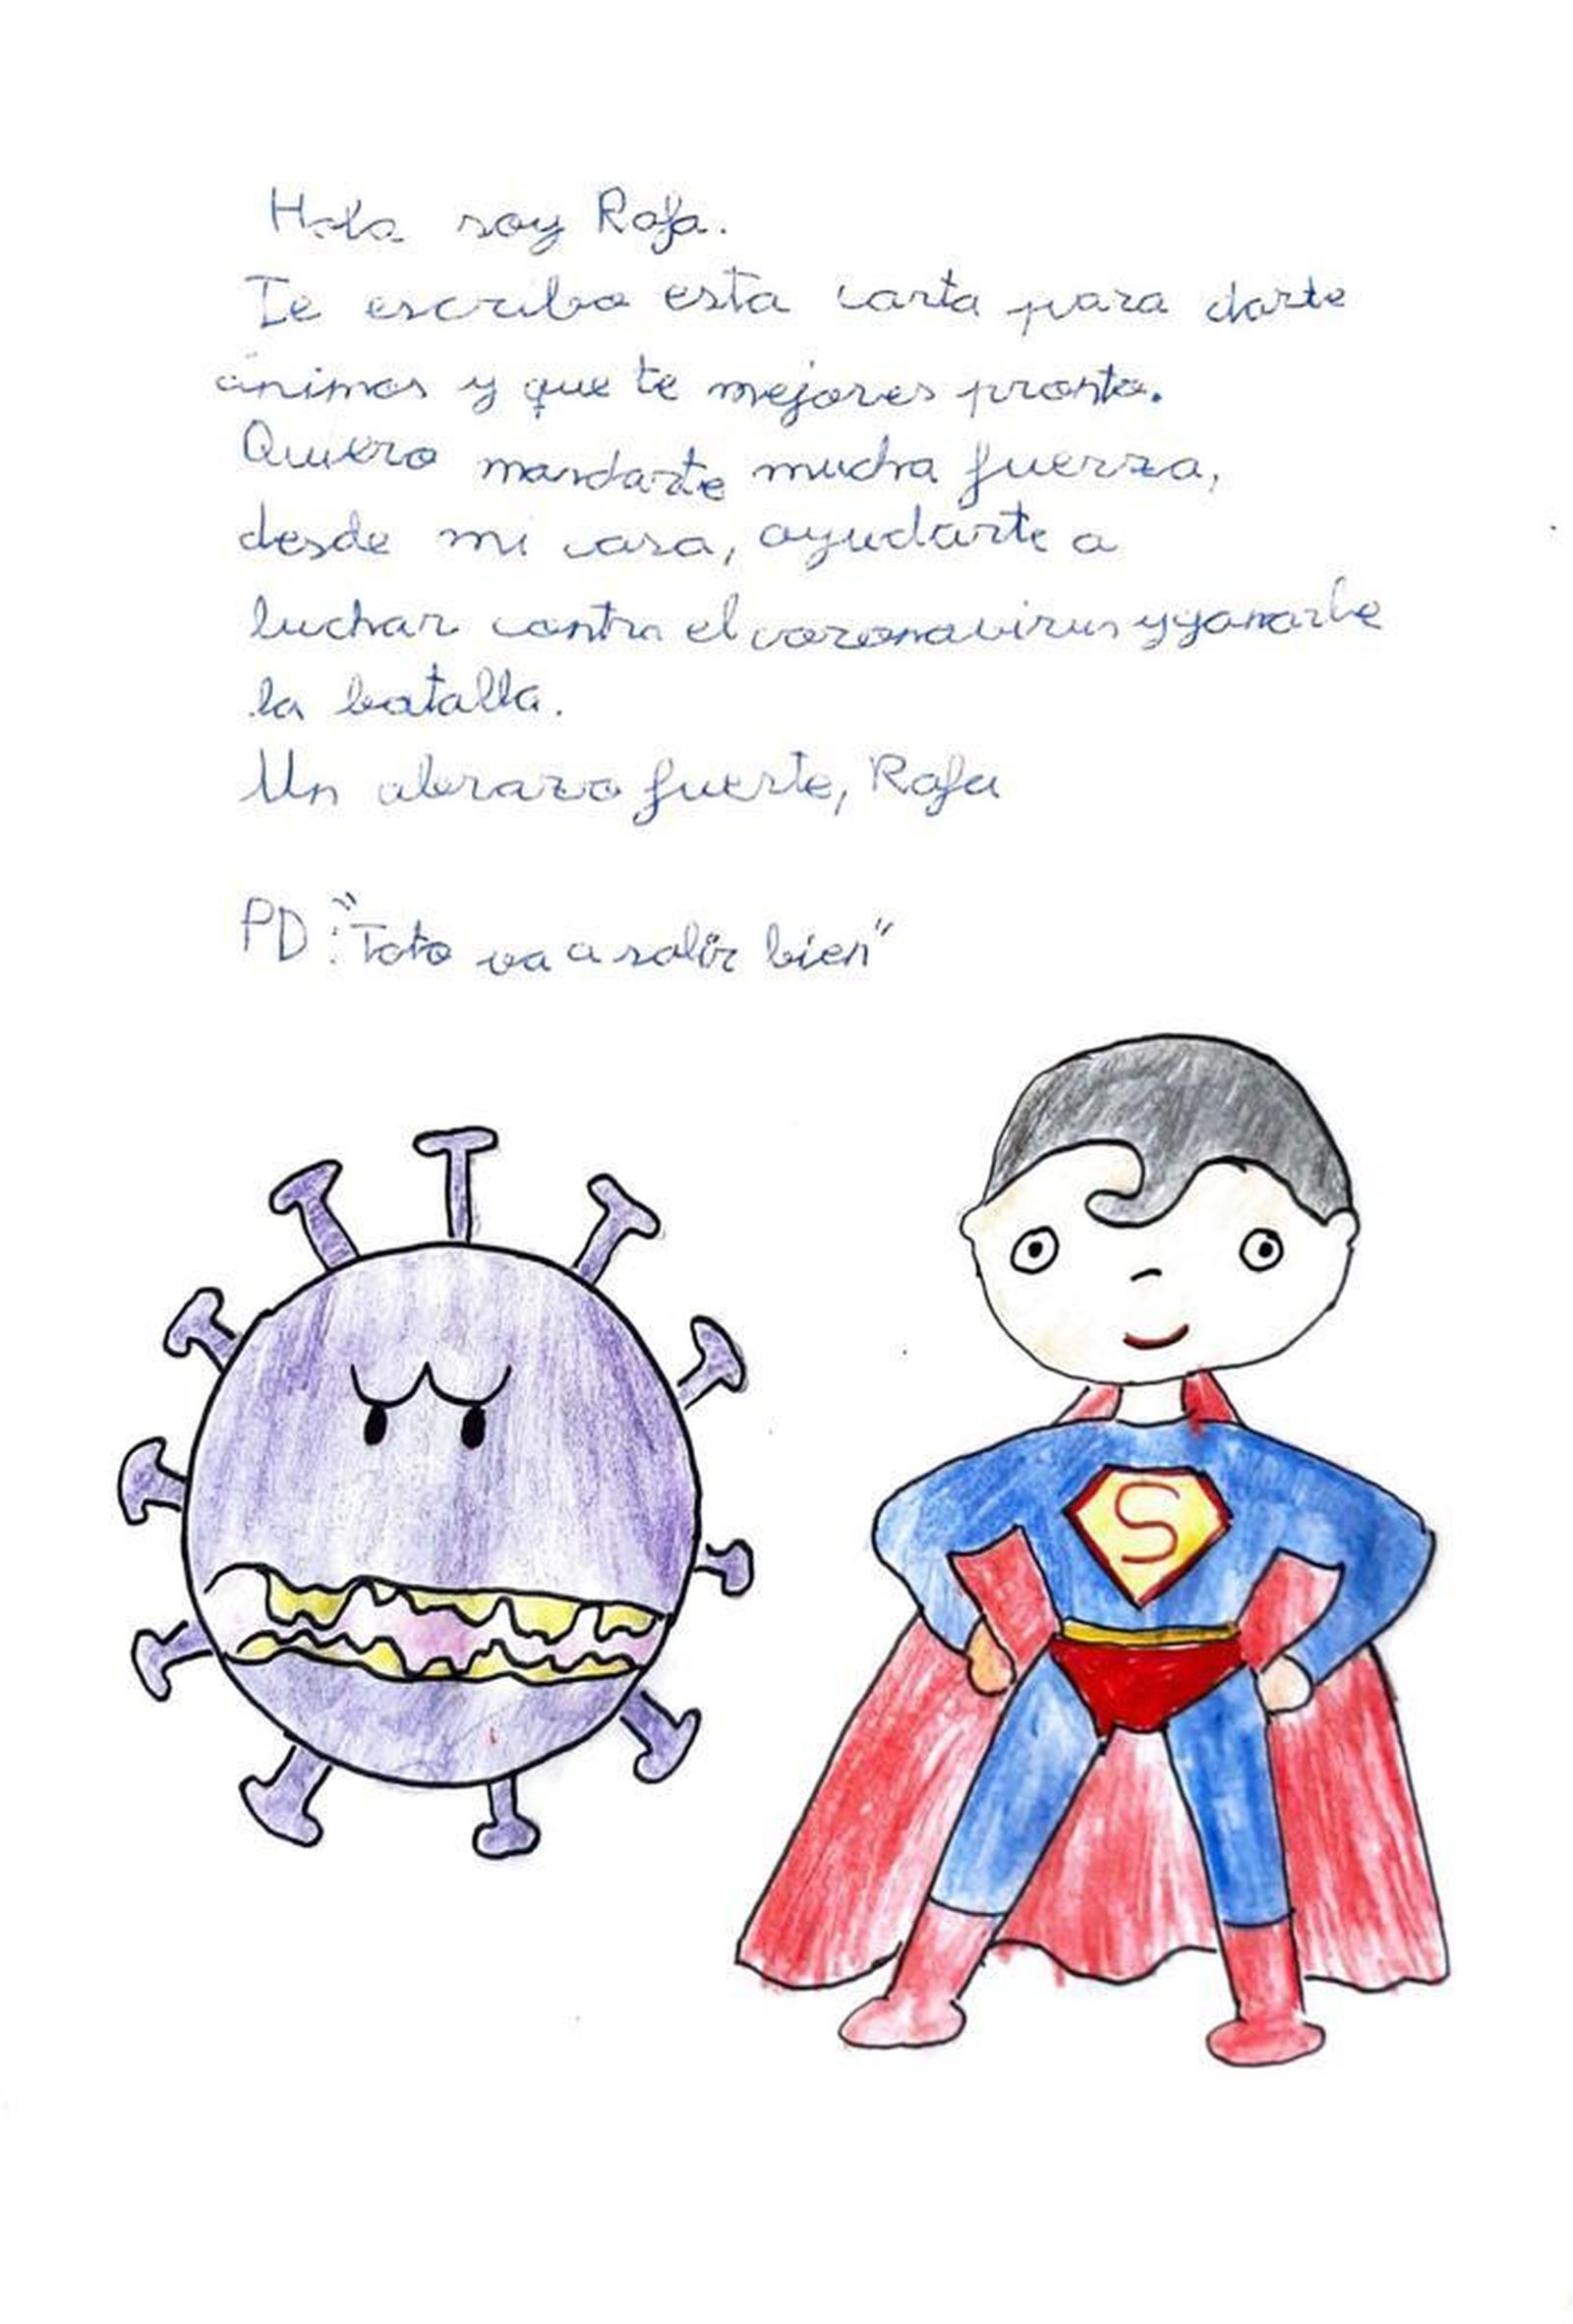 Hola soy Rafa.
Te escribo esta carta para darte
ánimos y que te mejores pronto.
Quiero mandarte mucha fuerza,
desde mi casa, ayudarte a
luchar contra el coronavirus y ganarle
la batalla.
Un abrazo fuerte, Rafa
PD: "Toto va a salir bien"
S